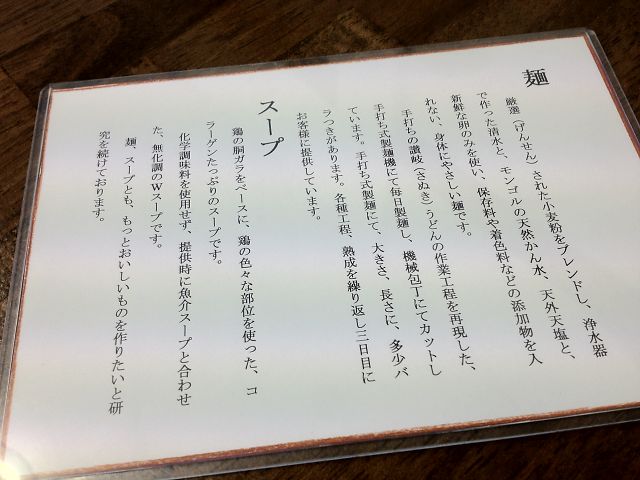 麺
厳選（げんせん）された小麦粉をブレンドし、浄水器
で作った清水と、モンゴルの天然かん水、天外天塩と、
新鮮な卵のみを使い、保存料や着色料などの添加物を入
れない、身体にやさしい麺です。
手打ちの讃岐（さぬき）うどんの作業工程を再現した、
手打ち式製麺機にて毎日製麺し、機械包丁にてカットし
ています。手打ち式製麺にて、大きさ、長さに、多少バ
ラつきがあります。各種工程、熟成を繰り返し三日目に
お客様に提供しています。
スープ
鶏の胴ガラをベースに、鶏の色々な部位を使った、コ
ラーゲンたっぷりのスープです。
化学調味料を使用せず、提供時に魚介スープと合わせ
た、無化調のWスープです。
麺、スープとも、もっとおいしいものを作りたいと研
究を続けております。